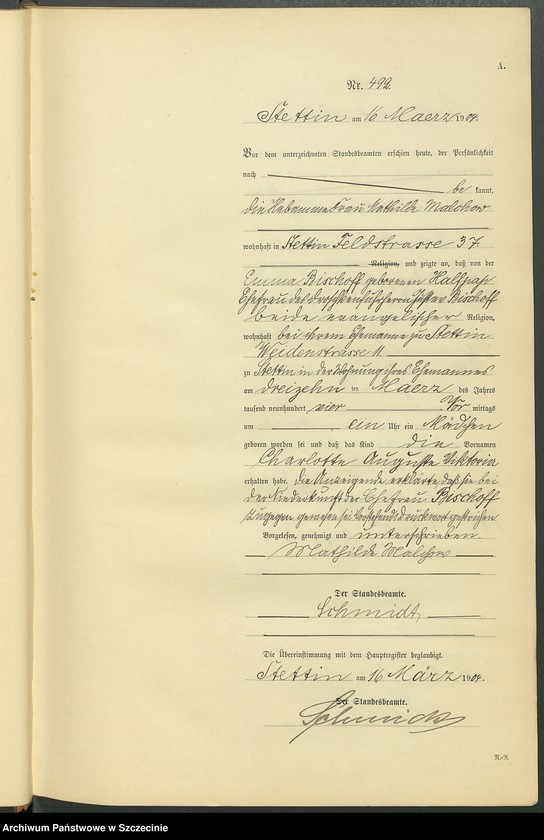 A.
Nr. 492.
Stettin am 16 Maerz 1904.
Vor dem unterzeichneten Standesbeamten erschien heute, der Persönlichkeit
nach be kannt,
die Hebamme Frau Mathilde Malchow
wohnhaft in Stettin Feldstrasse 37
Religion, und zeigte an, daß von der
Emma Bischoff geborenen Halfpap
Ehefrau des Droschkenkutschers Gustav Bischoff
beide evangelischer Religion,
wohnhaft bei ihrem Ehemanne zu Stettin
Weidenstrasse 11
zu Stettin in der Wohnung ihres Ehemannes
am dreizehn ten Maerz des Jahres
tausend neunhundert vier Vor mittags
um ein Uhr ein Mädchen
geboren worden sei und daß das Kind die Vornamen
Charlotte Auguste Viktoria
erhalten habe. Die Anzeigende erklärte, daß sie bei
der Niederkunft der Ehefrau Bischoff
zugegen gewesen sei. Vorstehend Druckwort gestrichen
Vorgelesen, genehmigt und unterschrieben.
Mathilde Malchow
Der Standesbeamte.
Schmidt,
Die Übereinstimmung mit dem Hauptregister beglaubigt.
Stettin am 16 März 1904.
Der Standesbeamte.
Schmidt
Archiwum Państwowe w Szczecinie